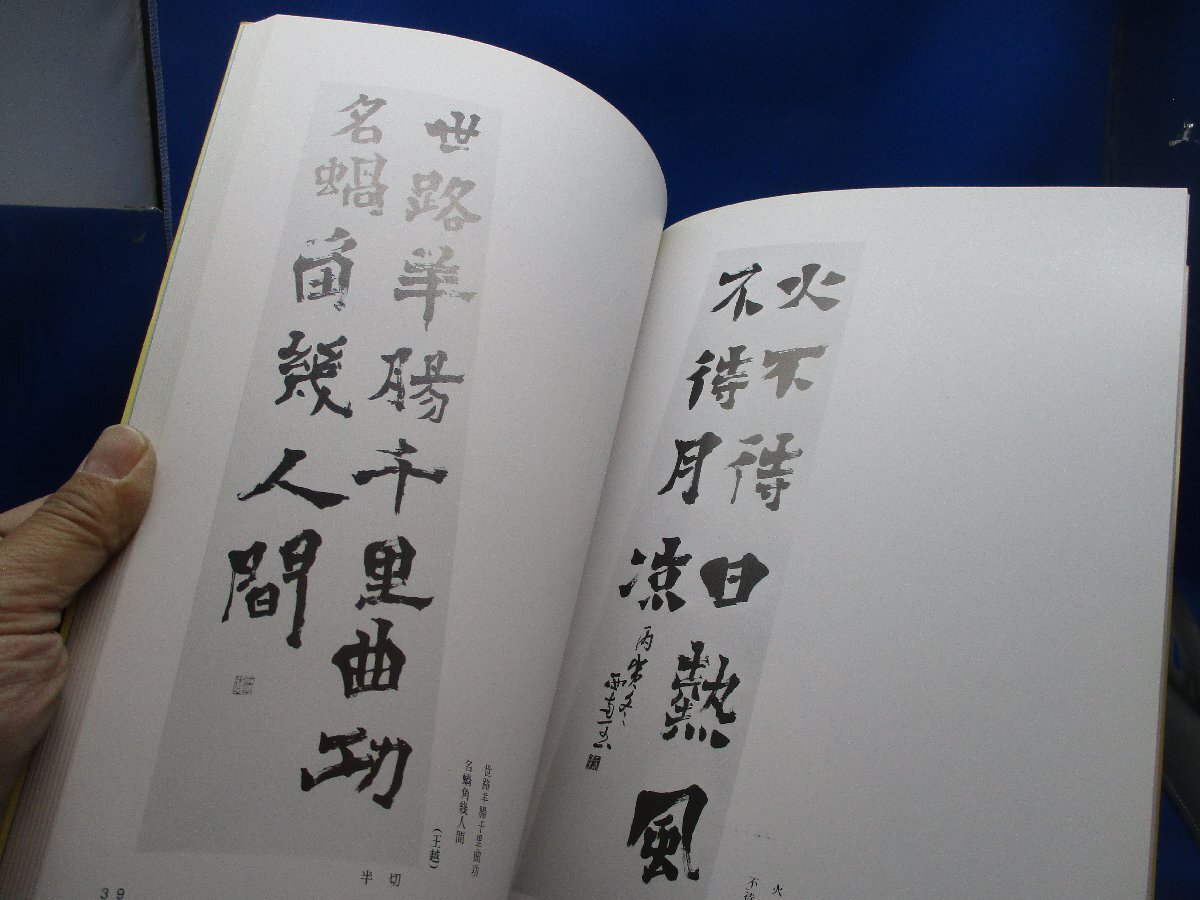 世路羊腸千里曲功
名蝸角幾人間
世路羊腸千里曲功
名蝸角幾人間
(王越)
半切
39
火不待日熱風
不待月涼
火
不待